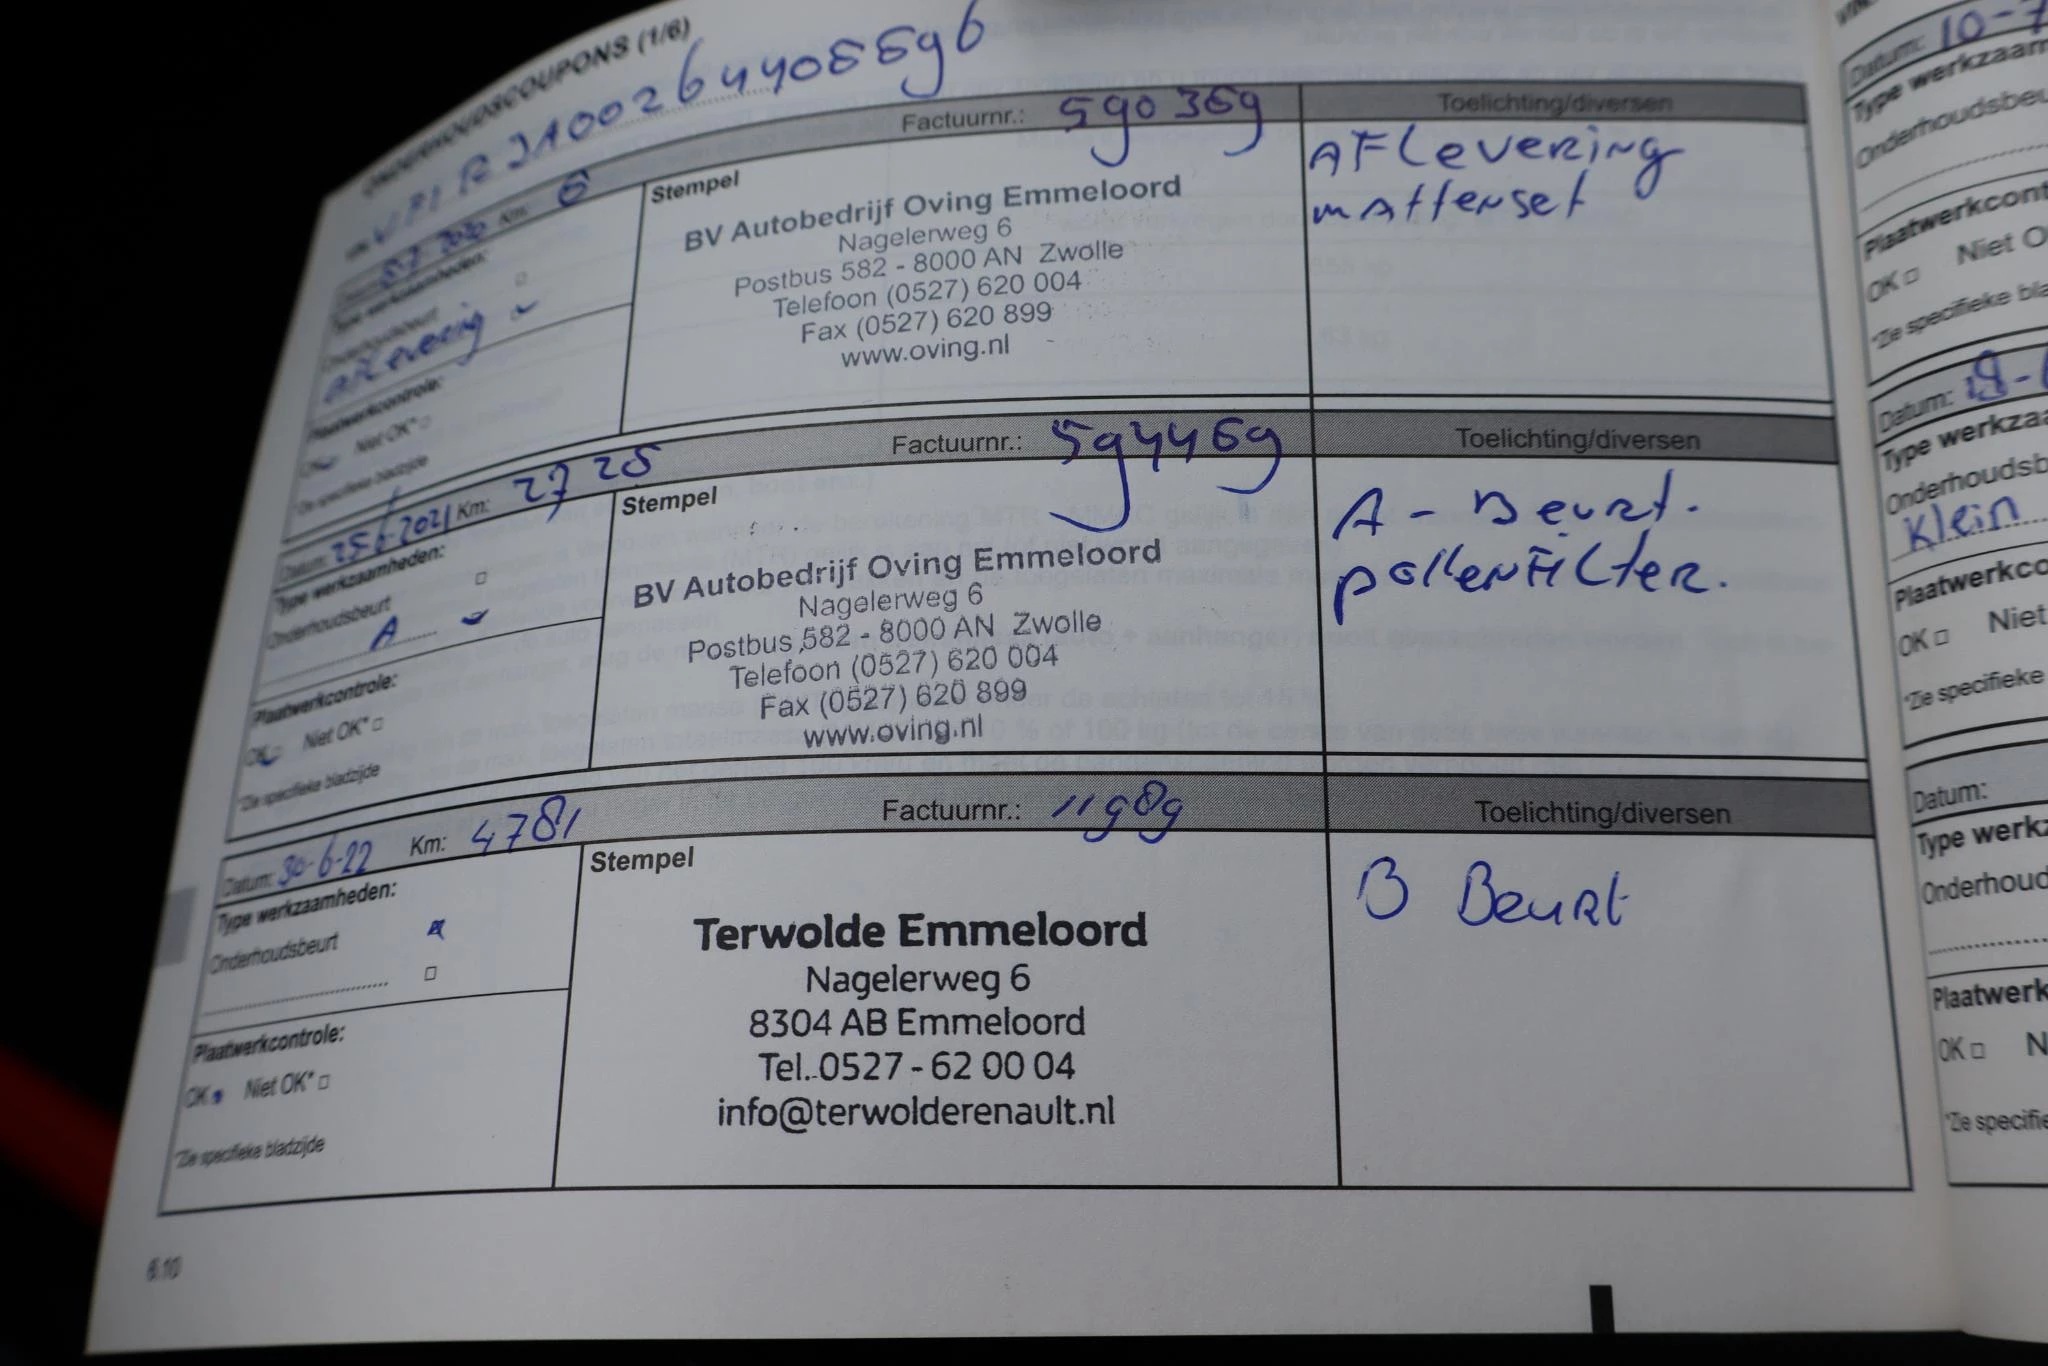 ONDERHOUDSCOUPONS (1/6)
Factuurnr.: 590369
Toelichting/diversen
Km: 6
Type werkzaamheden:
Onderhoudsbeurt
AFLevering
Plaatwerkcontrole:
OK Niet OK*
*Zie specifieke bladzijde
Stempel
BV Autobedrijf Oving Emmeloord
Nagelerweg 6
Postbus 582 - 8000 AN Zwolle
Telefoon (0527) 620 004
Fax (0527) 620 899
www.oving.nl
AFLevering
mattenset
Datum: 25-6-2021 Km: 2725
Factuurnr.: 594469
Toelichting/diversen
Type werkzaamheden:
Onderhoudsbeurt
A
Plaatwerkcontrole:
OK Niet OK*
*Zie specifieke bladzijde
Stempel
BV Autobedrijf Oving Emmeloord
Nagelerweg 6
Postbus 582 - 8000 AN Zwolle
Telefoon (0527) 620 004
Fax (0527) 620 899
www.oving.nl
A - Beurt.
pollenFilter.
Datum: 30-6-22 Km: 4781
Factuurnr.: 11989
Toelichting/diversen
Type werkzaamheden:
Onderhoudsbeurt
Plaatwerkcontrole:
OK Niet OK*
*Zie specifieke bladzijde
Stempel
Terwolde Emmeloord
Nagelerweg 6
8304 AB Emmeloord
Tel. 0527 - 62 00 04
info@terwolderenault.nl
B Beurt
6.10
Datum: 10-7
Type werkzaam
Onderhoudsbeu
Plaatwerkcont
OK Niet O
*Zie specifieke bla
Datum:
Type werkzaa
Onderhoudsb
Klein
Plaatwerkco
OK Niet
*Zie specifieke
Datum:
Type werkz
Onderhoud
Plaatwerk
OK N
*Zie specifie